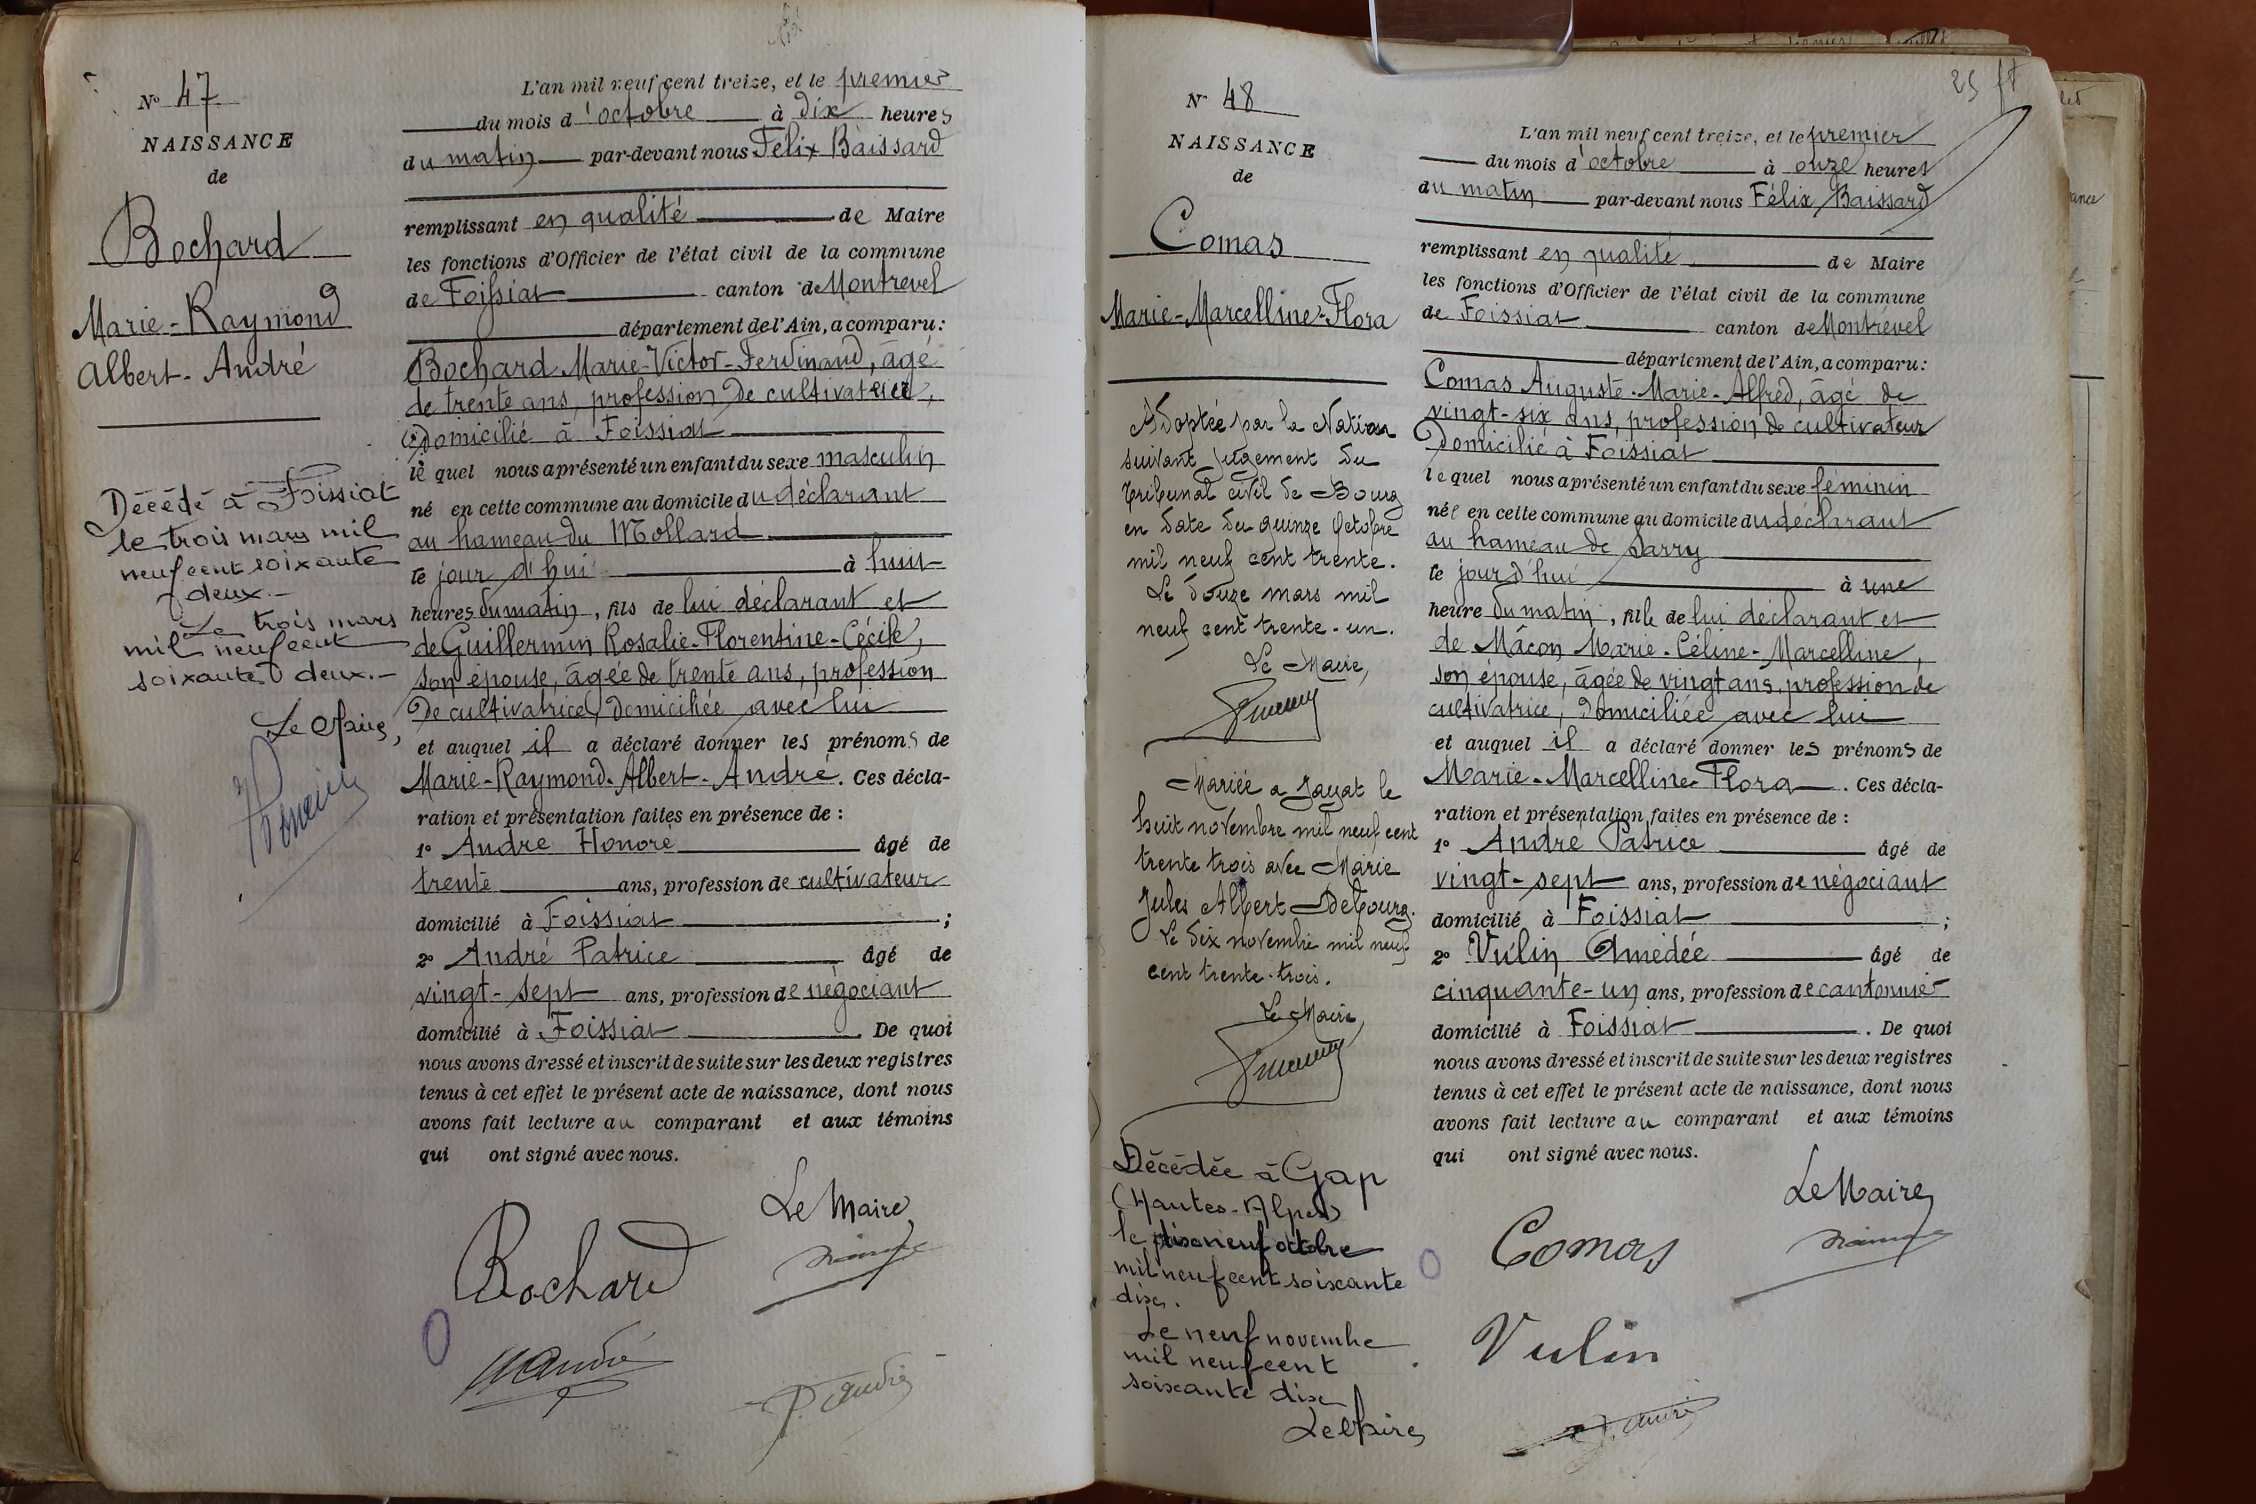 No 47
NAISSANCE
de
Bochard
Marie-Raymond
Albert-André
Décédé à Foissiat
le trois mars mil
neuf cent soixante
deux.-
Le trois mars
mil neuf cent
soixante deux.-
Le Maire,
L'an mil neuf cent treize, et le premier
du mois d'octobre à dix heures
du matin par-devant nous Félix Baissard
remplissant en qualité de Maire
les fonctions d'Officier de l'état civil de la commune
de Foissiat canton de Montrevel
département de l'Ain, a comparu:
Bochard Marie-Victor-Ferdinand, âgé
de trente ans, profession de cultivateur,
domicilié à Foissiat
le quel nous a présenté un enfant du sexe masculin
né en cette commune au domicile du déclarant
au hameau du Mollard
le jour d'hui à huit
heures du matin, fils de lui déclarant et
de Guillermin Rosalie-Florentine-Cécile,
son épouse, âgée de trente ans, profession
de cultivatrice, domiciliée avec lui
et auquel il a déclaré donner les prénoms de
Marie-Raymond-Albert-André. Ces décla-
ration et présentation faites en présence de :
1o André Honoré âgé de
trente ans, profession de cultivateur
domicilié à Foissiat ;
2o André Patrice âgé de
vingt-sept ans, profession de négociant
domicilié à Foissiat. De quoi
nous avons dressé et inscrit de suite sur les deux registres
tenus à cet effet le présent acte de naissance, dont nous
avons fait lecture au comparant et aux témoins
qui ont signé avec nous.
Le Maire,
Bochard
H André
P. André
25
No 48
NAISSANCE
de
Comas
Marie-Marcelline-Flora
Adoptée par la Nation
suivant jugement du
tribunal civil de Bourg
en date du quinze Octobre
mil neuf cent trente.
Le douze mars mil
neuf cent trente-un.
Le Maire,
Mariée à Jayat le
huit novembre mil neuf cent
trente trois avec Marie
Jules Albert Debourg.
Le dix novembre mil neuf
cent trente-trois.
Le Maire,
Décédée à Gap
(Hautes-Alpes)
le dix neuf octobre
mil neuf cent soixante
dix.
Le neuf novembre
mil neuf cent
soixante dix
Le Maire,
L'an mil neuf cent treize, et le premier
du mois d'octobre à onze heures
du matin par-devant nous Félix Baissard
remplissant en qualité de Maire
les fonctions d'Officier de l'état civil de la commune
de Foissiat canton de Montrevel
département de l'Ain, a comparu:
Comas Auguste-Marie-Alfred, âgé de
vingt-six ans, profession de cultivateur
domicilié à Foissiat
le quel nous a présenté un enfant du sexe féminin
née en cette commune au domicile du déclarant
au hameau de Sarry
le jour d'hui à une
heure du matin, fille de lui déclarant et
de Mâcon Marie-Céline-Marcelline,
son épouse, âgée de vingt ans, profession de
cultivatrice, domiciliée avec lui
et auquel il a déclaré donner les prénoms de
Marie-Marcelline-Flora. Ces décla-
ration et présentation faites en présence de :
1o André Patrice âgé de
vingt-sept ans, profession de négociant
domicilié à Foissiat ;
2o Vulin Amédée âgé de
cinquante-un ans, profession de cantonnier
domicilié à Foissiat. De quoi
nous avons dressé et inscrit de suite sur les deux registres
tenus à cet effet le présent acte de naissance, dont nous
avons fait lecture au comparant et aux témoins
qui ont signé avec nous.
Le Maire,
Comas
Vulin
P. André